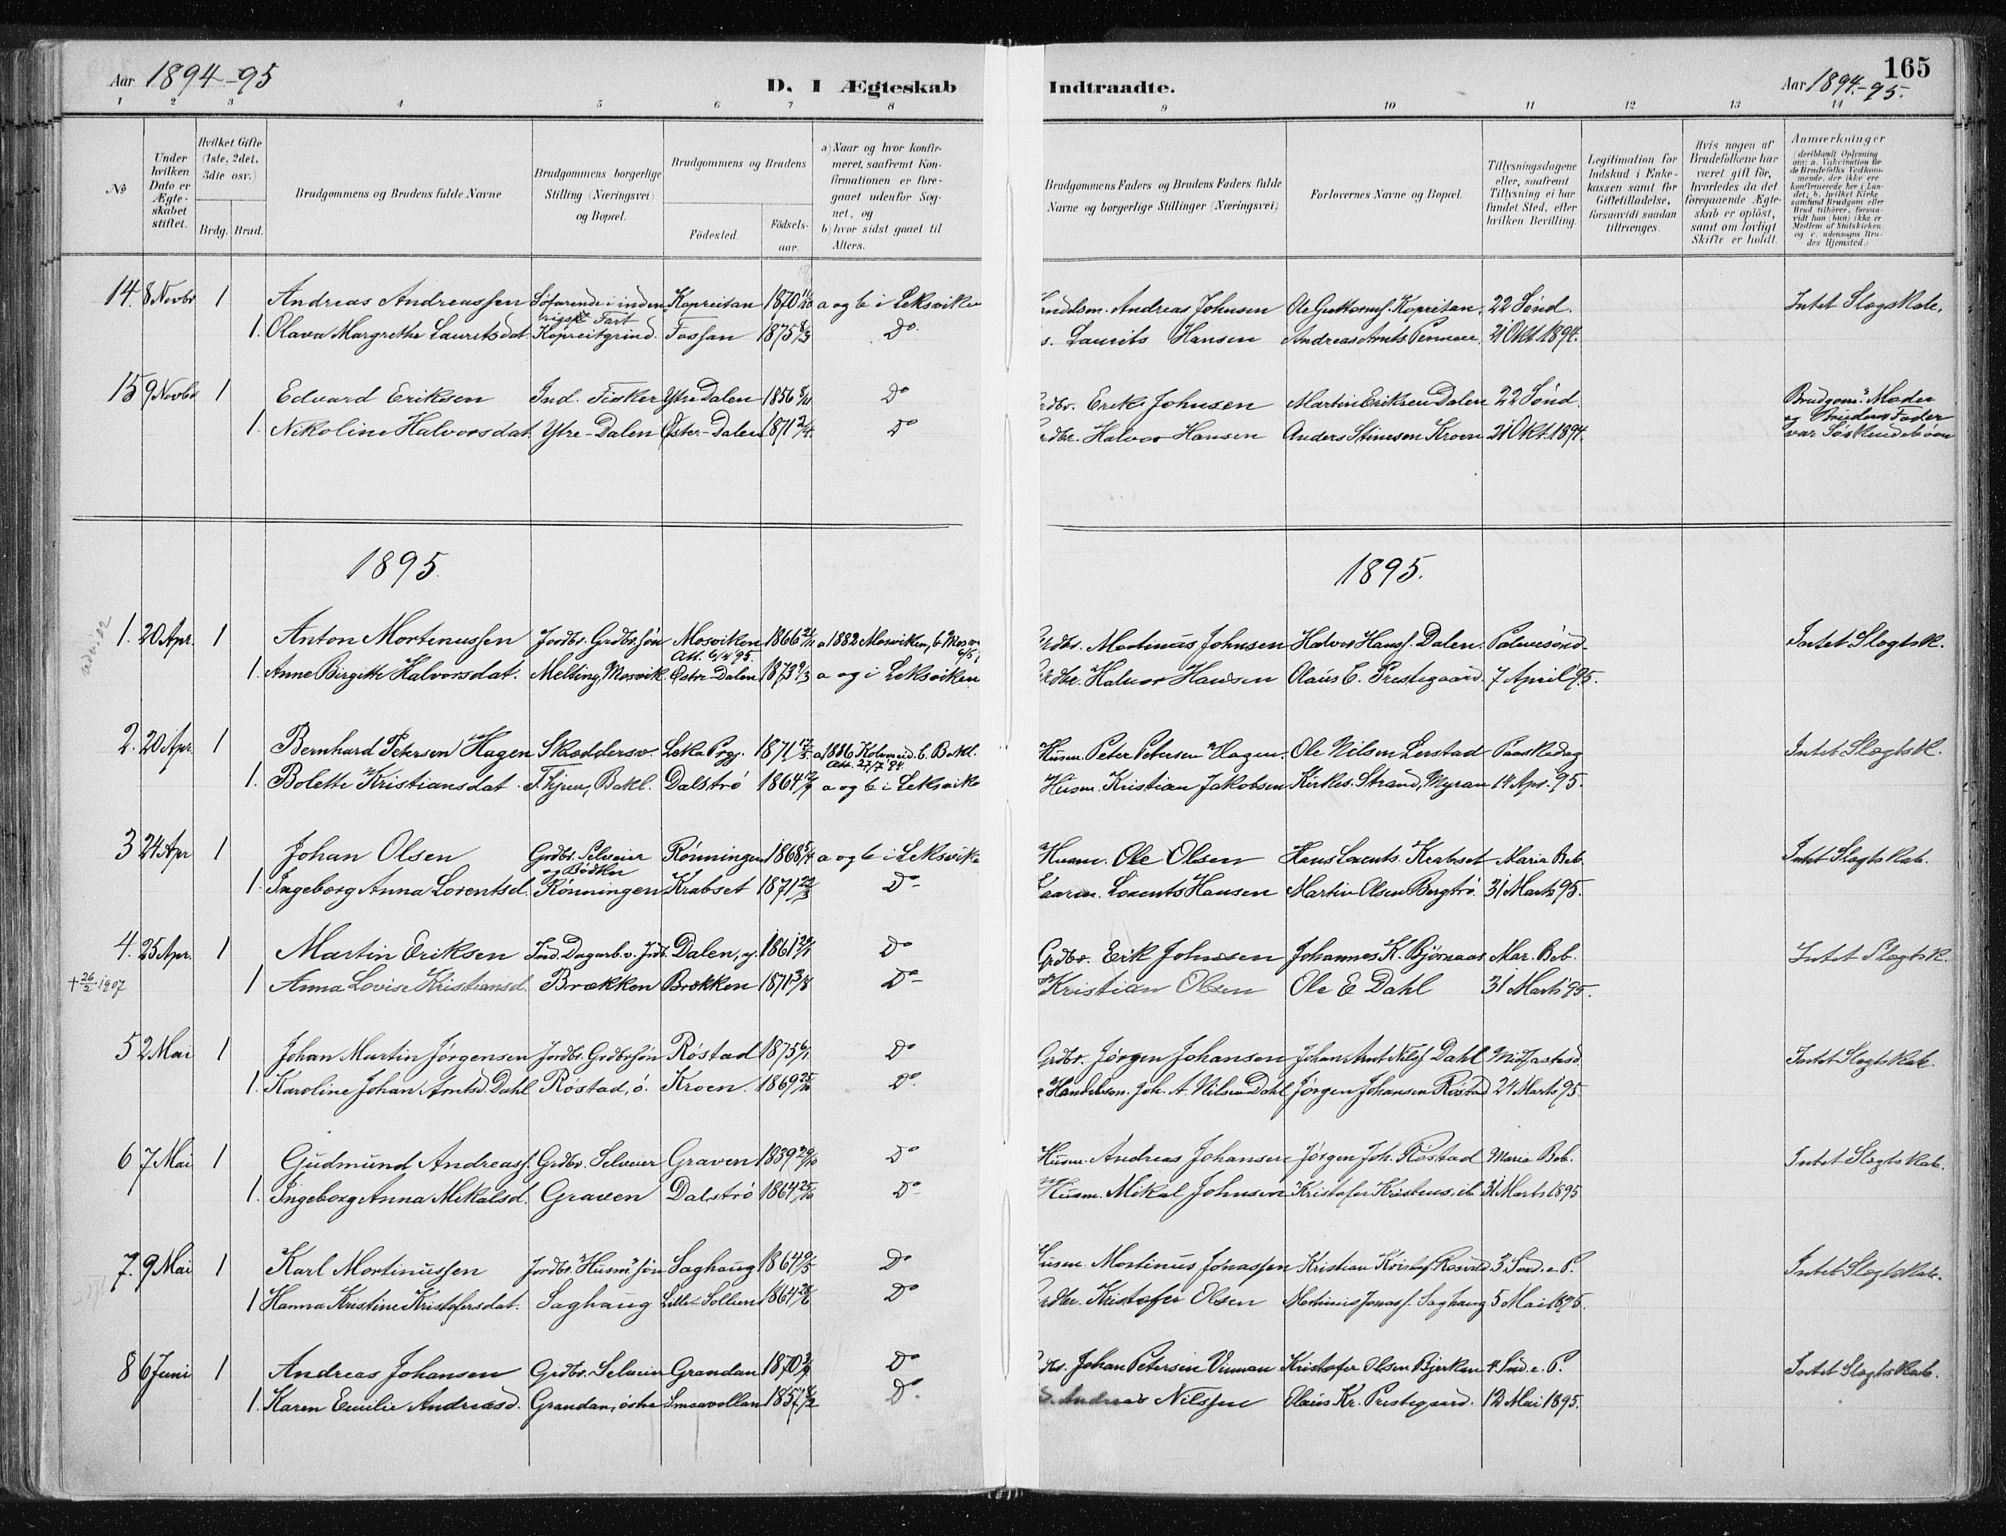 165
Aar 1894-95
D. I Ægteskab
Indtraadte.
Aar 1894.-95.
1 2 3 4 5 6 7 8 9 10 11 12 13 14
No
Under hvilken Dato er Ægteskabet stiftet.
Hvilket Gifte (1ste, 2det, 3die osv.)
Brdg. Brud.
Brudgommens og Brudens fulde Navne
Brudgommens borgerlige Stilling (Næringsvei) og Bopæl.
Brudgommens og Brudens
Fødested.
Fødselsaar.
a) Naar og hvor konfirmeret, saafremt Konfirmationen er foregaaet udenfor Sognet, og
b) hvor sidst gaaet til Alters.
Brudgommens Faders og Brudens Faders fulde Navne og borgerlige Stillinger (Næringsvei)
Forlovernes Navne og Bopæl.
Tillysningsdagene eller, saafremt Tillysning ei har fundet Sted, efter hvilken Bevilling.
Legitimation for Indskud i Enkekassen samt for Giftetilladelse, forsaavidt saadan tiltrænges.
Hvis nogen af Brudefolkene har været gift før, hvorledes da det foregaaende Ægteskab er opløst, samt om lovligt Skifte er holdt.
Anmærkninger
(deriblandt Oplysning om: a. Vakcination for de Brudefolks Vedkommende, der ikke ere konfirmerede her i Landet; b. hvilket Kirkesamfund Brudgom eller Brud tilhører, forsaavidt han (hun) ikke er Medlem af Statskirken, og c. udensogns Brudes Hjemsted.)
14. 8 Novbr 1 Andreas Andreassen Søfarende i inden Kopreitan 1870 a og b i Leksviken Andreas Johnsen Ole Guttormsf Kopreitan. 22 Sønd. Intet Slægtskab.
rigsk Fart
1. Olava Margrethe Lauritsdat Kopreitgrind. Fossan 1875 8/3 Do. Laurits Hansen Andreas Arnts 21 Okt. 1894.
15 9 Novbr 1 Edvard Eriksen Ind. Fisker Ytre Dalen 1856 Do Grdbr. Erik Johnsen Martin Eriksen Dalen 22 Sønd. Brudgom. Moder
1. Nikoline Halvorsdat. Ytre-Dalen Øster-Dalen 1871 2/4 Do Grdbr. Halvor Hansen Anders Kroen 21 Okt. 1894. og Brudens Fader
var Søskendebørn
1895.
1895.
1. 20 Apr. 1 Anton Mortinussen Jordbr. Grdbr. søn Mosviken 1866 a 1882 Mosviken, b Mosv Grdbr. Martinus Johnsen Halvor Hansf. Dalen. Palmesønd Intet Slægtsk.
Att. 6/4 95.
1. Anne Birgitte Halvorsdat. Melting, Mosvik. Østre Dalen 1873 9/3 a og i Leksviken Grdbr. Halvor Hansen Olaus C. Prestegaard. 7 April '95.
2. 20 Apr. 1 Bernhard Petersen Hagen Skræddersv. Leka Prgj. 1871 a 1886 Kolvereid. b. Bakl. Husm. Peter Petersen Hagen. Ole Nilsen Lerstad Paaskedag Intet Slægtsk.
Att. 27/7 94
1. Bolette Kristiansdat. Tfjen., Bakl. Dalstrø 1864 a og b i Leksvike Husm. Kristian Jakobsen Kirkes. Strand, Myran 14 Apr. 95.
3 24 Apr 1 Johan Olsen Grdbr. Selveier Rønningen 1868 a og b i Leksvike Husm. Ole Olsen Hans Lorents. Krabset Maria Beb. Intet Slægtskab.
og Bødker
1. Ingeborg Anna Lorentsd. Rønningen Krabset 1871 Do- Lorents Hansen Martin Olsen Bergtrø. 31 Marts 95.
4. 25 Apr. 1 Martin Eriksen Ind. Dagarb. v. Jrdb. Dalen, y. 1861 Do Grdbr. Erik Johnsen Johannes K. Bjørnaas Mar. Beb. Intet Slægtsk.
+ 26/2 1907 1 Anna Lovise Kristiansd. Brækken Brækken 1871 3/8 Do- Kristian Olsen Ole E Dahl 31 Marts '95.
5 2 Mai 1 Johan Martin Jørgensen Jordbr. Grdbrsøn Røstad 1875 Do Grdbr. Jørgen Johansen Johan Arnt Nilsf Dahl Midfastesd Intet Slægtskab.
1. Karoline Johan Arntsd. Dahl Røstad, ø. Kroen. 1869 Do. Handelsm. Joh. A. Nilsen Dahl Jørgen Johansen Røstad 24 Marts 95.
6 7 Mai 1 Gudmund Andreasf. Grdbr. Selveier Graven 1839 Do Husm. Andreas Johansen Jørgen Joh. Røstad Maria Beb. Intet Slægtskab.
1. Ingeborg Anna Mikalsd. Graven Dalstrø 1864 Do- Husm. Mikal Johnsen Kristofer 31 Marts 1895
7. 9 Mai 1 Karl Mortinussen Jordbr. Husm. søn Saghaug 1864 Do Husm. Mortinus Jonassen Kristian Kristof. 3 Snd. e. P. Intet Slægtskab.
1 Hanna Kristine Kristofersdat. Saghaug Lillet Sollien 1864 Do Grdbr. Kristofer Olsen Mortinus Jonasf. Saghaug 5 Mai 1895.
8 6 Juni 1 Andreas Johansen Grdbr. Selveier Grandan 1870 Do Johan Petersen Vinnan Kristofer Olsen Bjerkan 4 Snd. e. P. Intet Slægtskab.
1. Karen Emilie Andreasd. Grandan, østre Smaavollan 1857 Do. Andreas Nilssen Olaus Kr. Prestegaard. 12 Mai 1895.